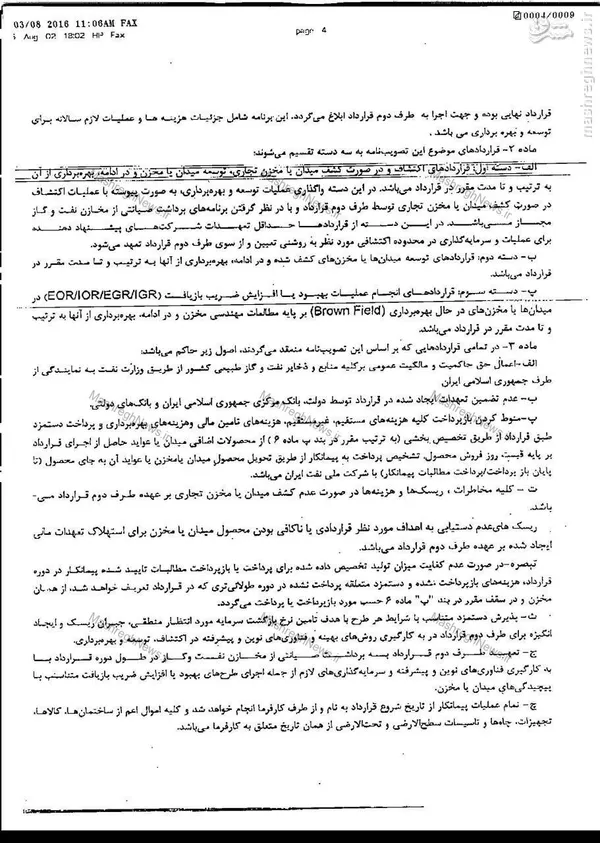 03/08 2016 11:06AM FAX
0004/0009
Aug 02 18:02 HP Fax
page 4
مشرق
mashreghnews.ir
قرارداد نهایی بوده و جهت اجرا به طرف دوم قرارداد ابلاغ می‌گردد. این برنامه شامل جزئیات هزینه ها و عملیات لازم سالانه برای
توسعه و بهره برداری می باشد .
ماده ۲- قراردادهای موضوع این تصویب‌نامه به سه دسته تقسیم می‌شوند:
الف- دسته اول: قراردادهای اکتشاف و در صورت کشف میدان یا مخزن تجاری، توسعه میدان یا مخزن و در ادامه، بهره‌برداری از آن
به ترتیب و تا مدت مقرر در قرارداد می‌باشد. در این دسته واگذاری عملیات توسعه و بهره‌برداری، به صورت پیوسته با عملیات اکتشاف
در صورت کشف میدان یا مخزن تجاری توسط طرف دوم قرارداد و با در نظر گرفتن برنامه‌های برداشت صیانتی از مخازن نفت و گاز
مجاز می‌باشد. در این دسته از قراردادها حداقل تعهدات شرکت‌های پیشنهاد دهنده
برای عملیات و سرمایه‌گذاری در محدوده اکتشافی مورد نظر به روشنی تعیین و از سوی طرف دوم قرارداد تعهد می‌شود.
ب- دسته دوم: قراردادهای توسعه میدان‌ها یا مخزن‌های کشف شده و در ادامه، بهره‌برداری از آنها به ترتیب و تا مدت مقرر در
قرارداد می‌باشد.
پ- دسته سوم: قراردادهای انجام عملیات بهبود یا افزایش ضریب بازیافت (EOR/IOR/EGR/IGR) در
میدان‌ها یا مخزن‌های در حال بهره‌برداری (Brown Field) بر پایه مطالعات مهندسی مخزن و در ادامه، بهره‌برداری از آنها به ترتیب
و تا مدت مقرر در قرارداد می‌باشد.
ماده ۳- در تمامی قراردادهایی که بر اساس این تصویب‌نامه منعقد می‌گردند، اصول زیر حاکم می‌باشد:
الف-اعمال حق حاکمیت و مالکیت عمومی برکلیه منابع و ذخایر نفت و گاز طبیعی کشور از طریق وزارت نفت به نمایندگی از
طرف جمهوری اسلامی ایران
ب- عدم تضمین تعهدات ایجاد شده در قرارداد توسط دولت، بانک مرکزی جمهوری اسلامی ایران و بانک‌های دولتی.
پ-منوط کردن بازپرداخت کلیه هزینه‌های مستقیم، غیرمستقیم، هزینه‌های تامین مالی وهزینه‌های بهره‌برداری و پرداخت دستمزد
طبق قرارداد از طریق تخصیص بخشی (به ترتیب مقرر در بند پ ماده ۶ ) از محصولات اضافی میدان یا عواید حاصل از اجرای قرارداد
بر پایه قیمت روز فروش محصول. تشخیص پرداخت به پیمانکار از طریق تحویل محصول میدان یامخزن یا عواید آن به جای محصول (تا
پایان باز پرداخت/پرداخت مطالبات پیمانکار) با شرکت ملی نفت ایران می‌باشد.
ت – کلیه مخاطرات ، ریسک‌ها و هزینه‌ها در صورت عدم کشف میدان یا مخزن تجاری بر عهده طرف دوم قرارداد می-
باشد.
ریسک های‌عدم دستیابی به اهداف مورد نظر قراردادی یا ناکافی بودن محصول میدان یا مخزن برای استهلاک تعهدات مالی
ایجاد شده بر عهده طرف دوم قرارداد می‌باشد.
تبصره-در صورت عدم کفایت میزان تولید تخصیص داده شده برای پرداخت یا بازپرداخت مطالبات تایید شده پیمانکار در دوره
قرارداد، هزینه‌های بازپرداخت نشده و دستمزد متعلقه پرداخت نشده در دوره طولانی‌تری که در قرارداد تعریف خواهد شد، از همان
مخزن و در سقف مقرر در بند "پ" ماده ۶ حسب مورد بازپرداخت یا پرداخت می‌گردد.
ث- پذیرش دستمزد متناسب با شرایط هر طرح با هدف تامین نرخ بازگشت سرمایه مورد انتظار منطقی، جبران ریسک و ایجاد
انگیزه برای طرف دوم قرارداد در به کارگیری روش‌های بهینه و فناوری‌های نوین و پیشرفته در اکتشاف، توسعه و بهره‌برداری.
ج- تعهد طرف دوم قرارداد به برداشت صیانتی از مخازن نفت وگاز در طول دوره قرارداد با
به کارگیری فناوری‌های نوین و پیشرفته و سرمایه‌گذاری‌های لازم از جمله اجرای طرح‌های بهبود یا افزایش ضریب بازیافت متناسب با
پیچیدگی‌های میدان یا مخزن.
چ- تمام عملیات پیمانکار از تاریخ شروع قرارداد به نام و از طرف کارفرما انجام خواهد شد و کلیه اموال اعم از ساختمان‌ها، کالاها،
تجهیزات، چاه‌ها و تاسیسات سطح‌الارضی و تحت‌الارضی از همان تاریخ متعلق به کارفرما می‌باشد.